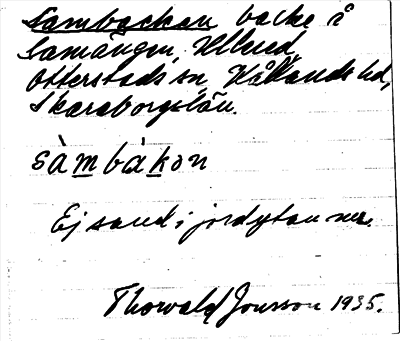 Sambackan backe å
Samängen, Ulleud,
Otterstads sn, Kållands hd,
Skaraborgs län.
sàmbàkən
Ej sand i jordytan nu.
Thorvald Jonsson 1935.